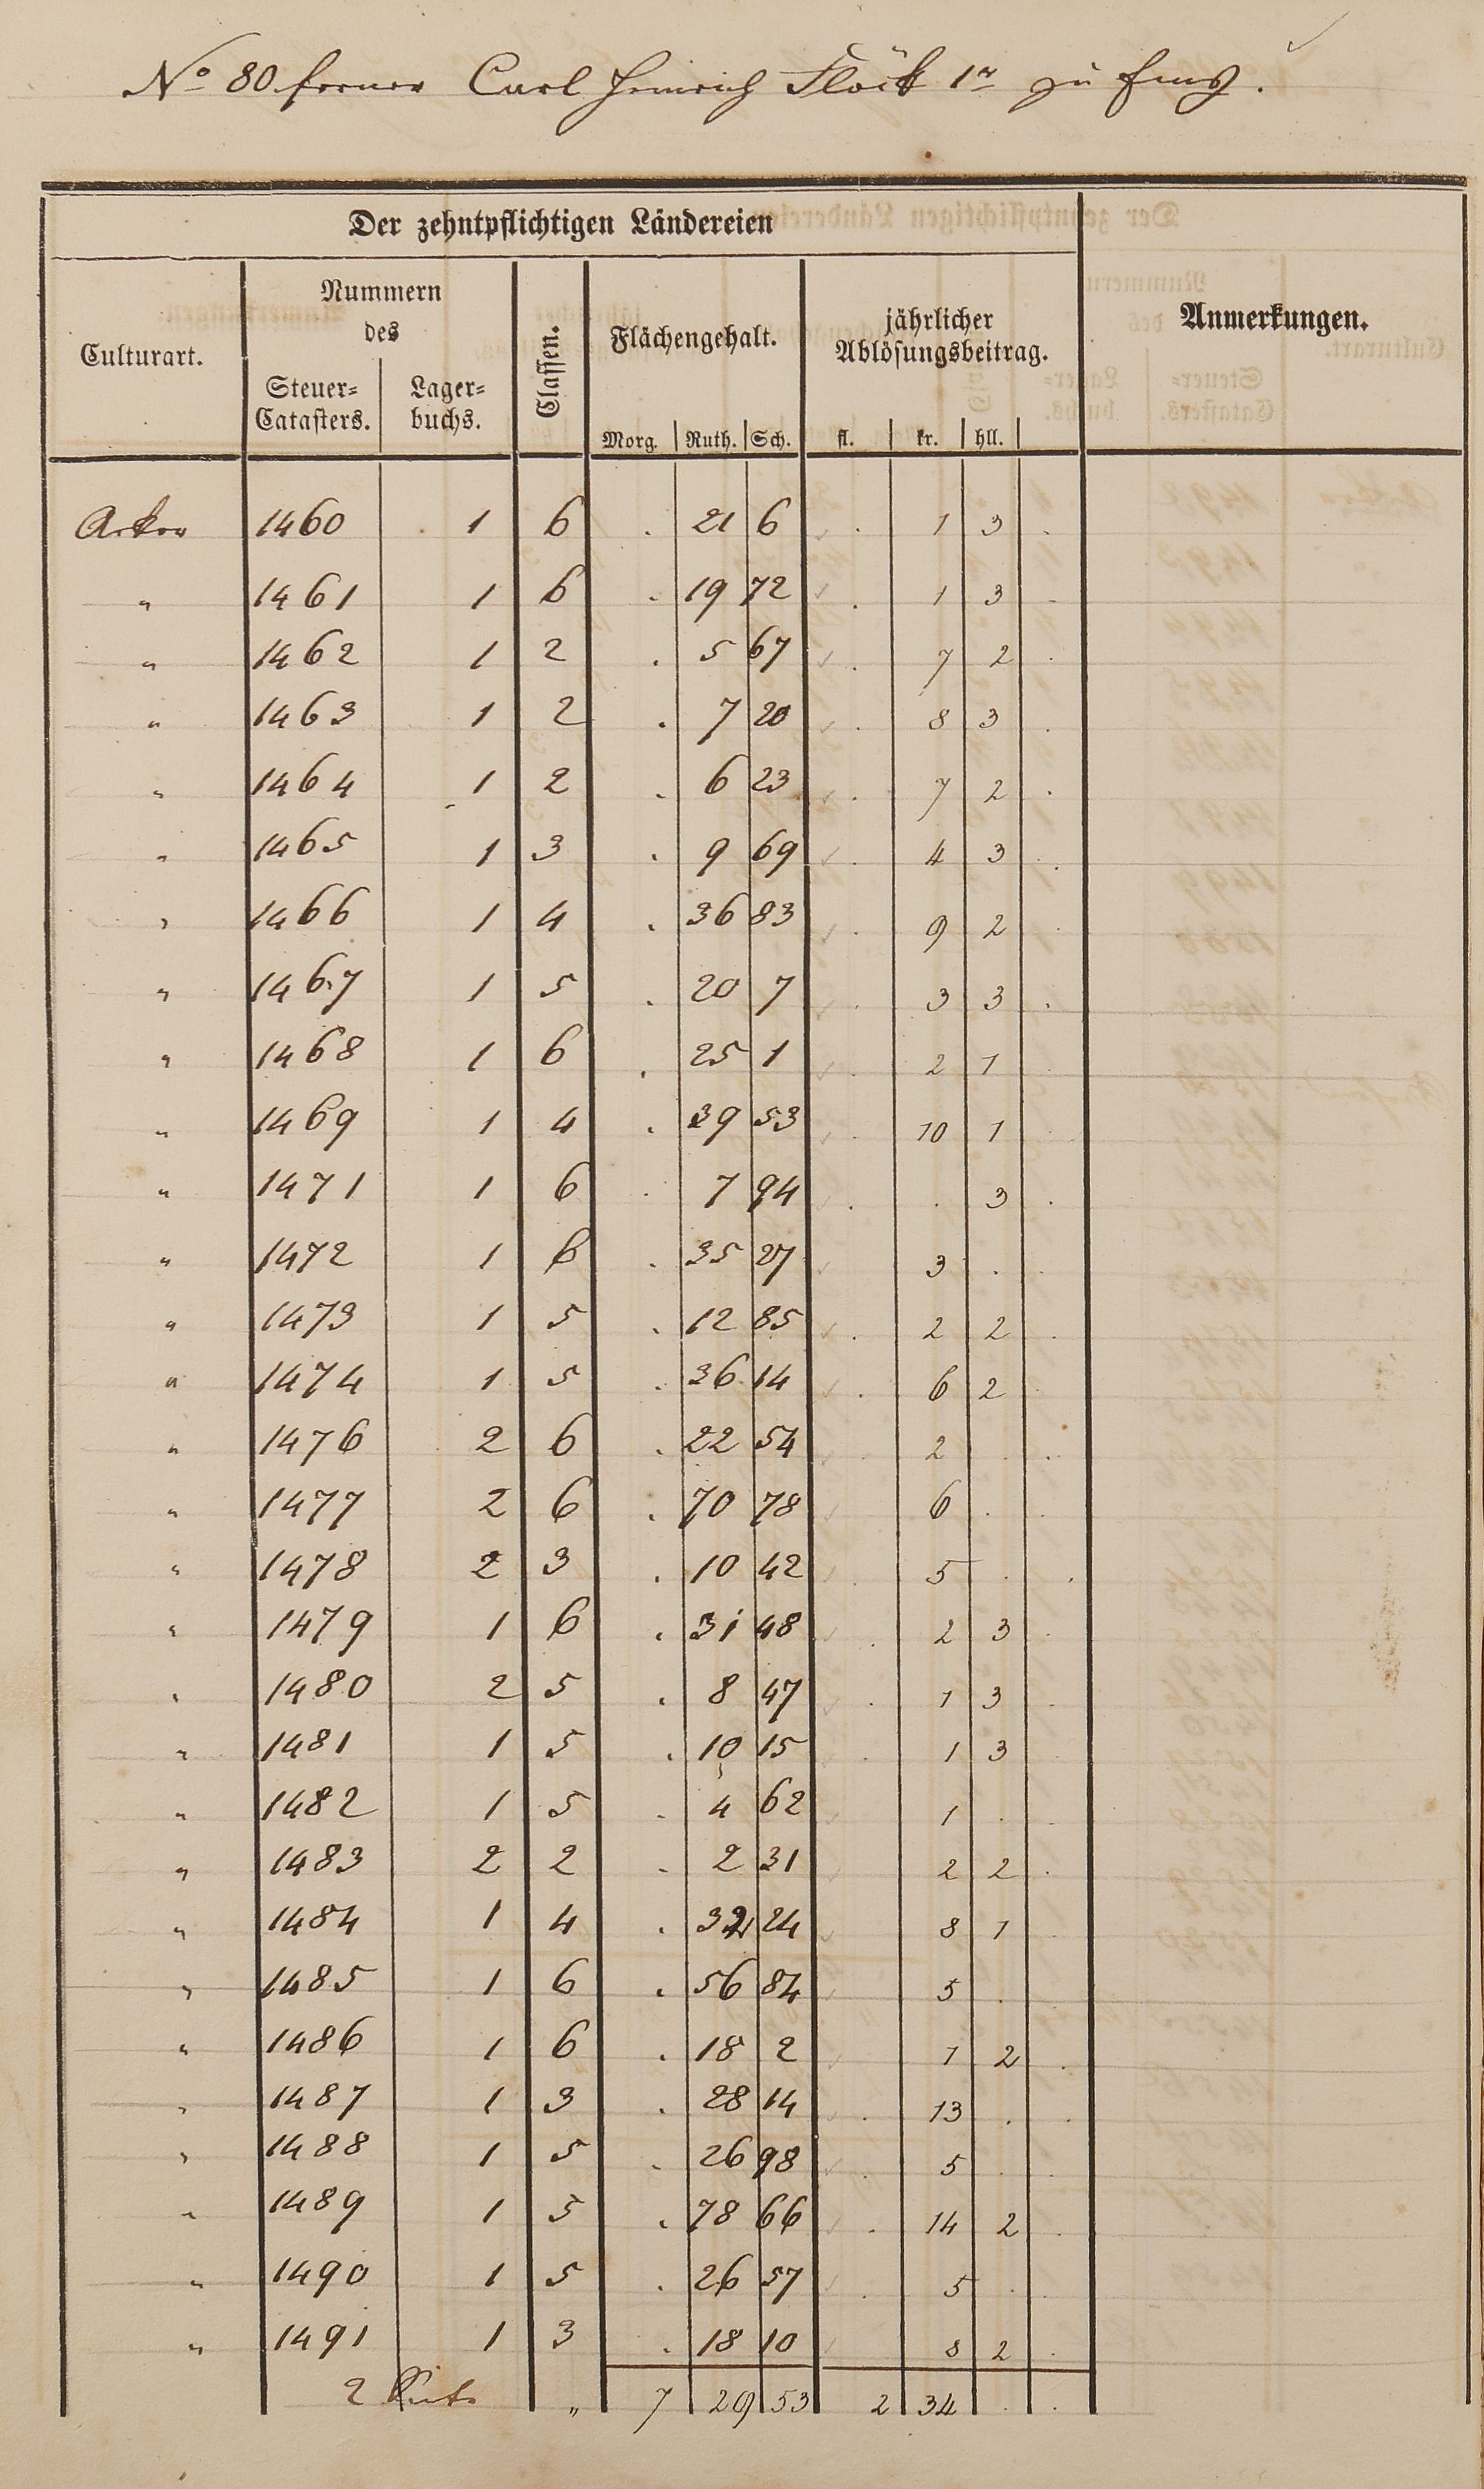 No 80 ferner Carl Heinrich Flöck 1r zu Ems.
Der zehntpflichtigen Ländereien
Culturart.
Nummern
des
Steuer=
Catasters.
Lager=
buchs.
Classen.
Flächengehalt.
Morg. Ruth. Sch.
jährlicher
Ablösungsbeitrag.
fl. kr. hll.
Anmerkungen.
Acker 1460 1 6 . 21 6 . 1 3 .
" 1461 1 6 . 19 72 . 1 3 .
" 1462 1 2 . 5 67 . 7 2 .
" 1463 1 2 . 7 20 . 8 3 .
" 1464 1 2 . 6 23 . 7 2 .
" 1465 1 3 . 9 69 . 4 3 .
" 1466 1 4 . 36 83 . 9 2 .
" 1467 1 5 . 20 7 . 3 3 .
" 1468 1 6 . 25 1 . 2 1
" 1469 1 4 . 39 53 . 10 1
" 1471 1 6 . 7 94 . . 3 .
" 1472 1 6 . 35 27 3 . .
" 1473 1 5 . 12 85 . 2 2 .
" 1474 1 5 . 36 14 . 6 2
" 1476 2 6 . 22 54 2 . .
" 1477 2 6 . 70 78 6 . .
" 1478 2 3 . 10 42 . 5 . .
" 1479 1 6 . 31 48 . 2 3 .
" 1480 2 5 . 8 47 . 1 3 .
" 1481 1 5 . 10 15 . 1 3
" 1482 1 5 . 4 62 1 . .
" 1483 2 2 . 2 31 2 2 .
" 1484 1 4 . 32 24 8 1
" 1485 1 6 . 56 84 5 .
" 1486 1 6 . 18 2 1 2 .
" 1487 1 3 . 28 14 . 13 . .
" 1488 1 5 . 26 98 . 5 .
" 1489 1 5 . 78 66 . 14 2 .
" 1490 1 5 . 26 57 . 5 .
" 1491 1 3 . 18 10 8 2 .
2 " 7 29 53 2 34 . .